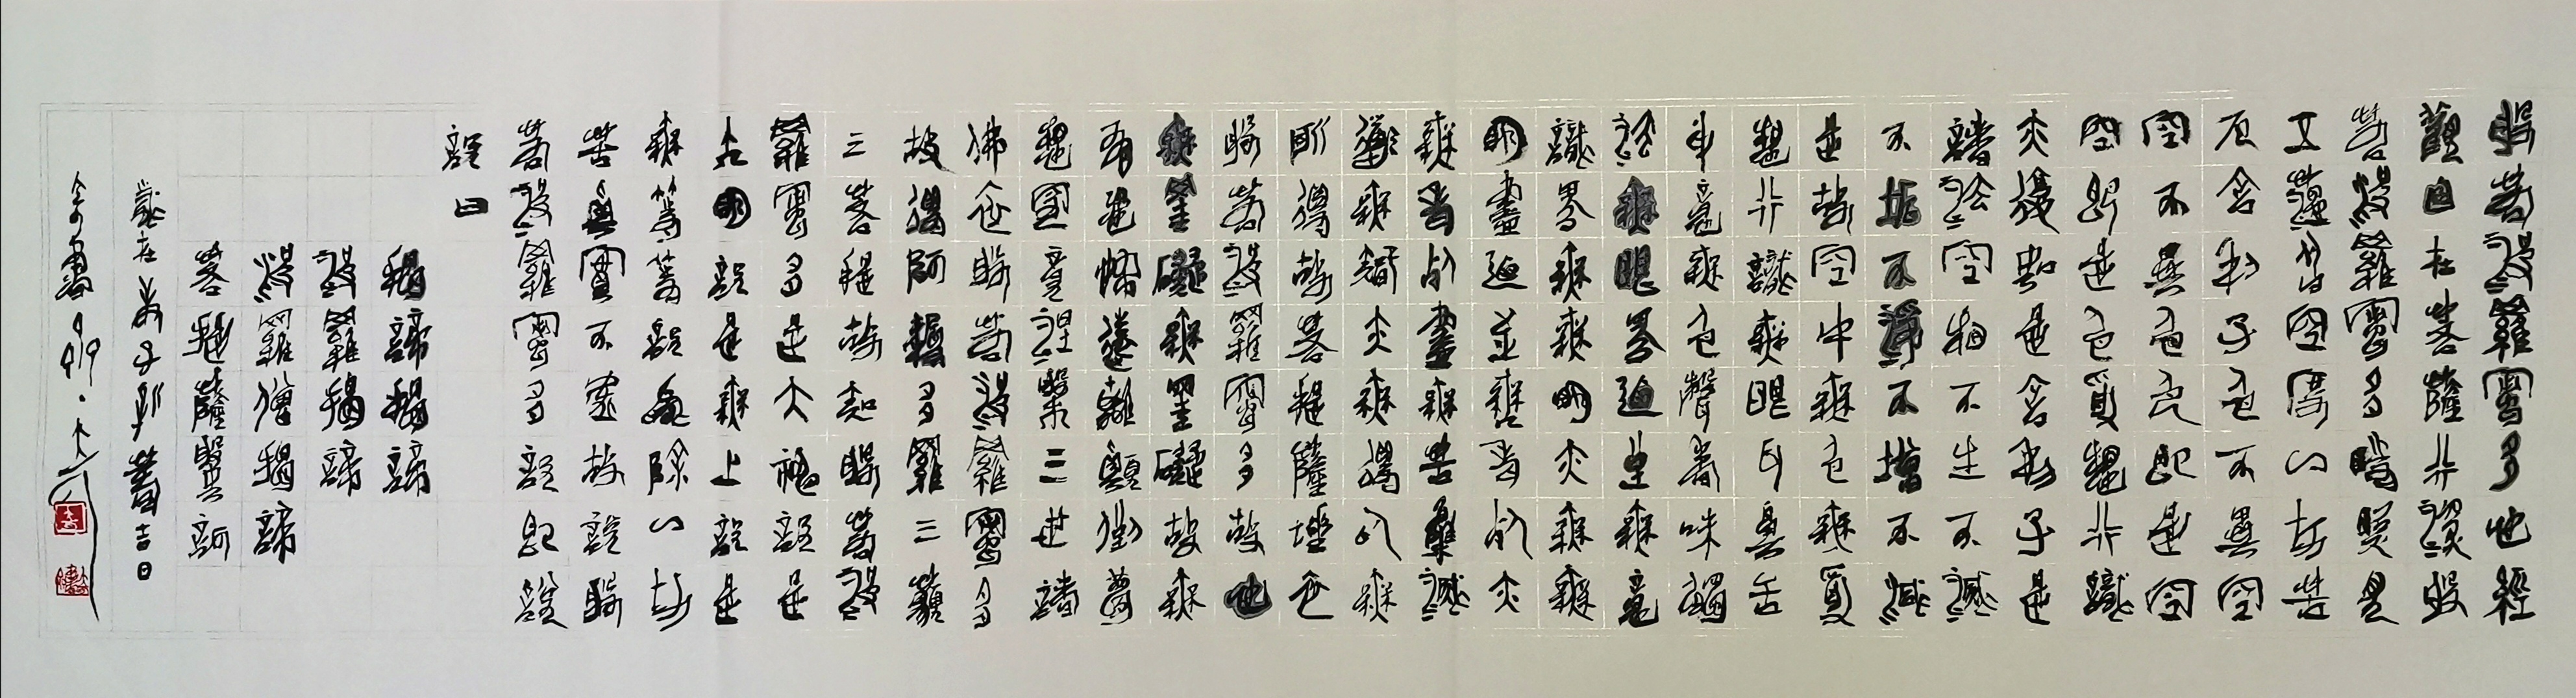 般若波羅蜜多心經
觀自在菩薩行深般
若波羅蜜多時照見
五蘊皆空度一切苦
厄舍利子色不異空
空不異色色即是空
空即是色受想行識
亦復如是舍利子是
諸法空相不生不滅
不垢不淨不增不減
是故空中無色無受
想行識無眼耳鼻舌
身意無色聲香味觸
法無眼界乃至無意
識界無無明亦無無
明盡乃至無老死亦
無老死盡無苦集滅
道無智亦無得以無
所得故菩提薩埵依
般若波羅蜜多故心
無罣礙無罣礙故無
有恐怖遠離顛倒夢
想究竟涅槃三世諸
佛依般若波羅蜜多
故得阿耨多羅三藐
三菩提故知般若波
羅蜜多是大神咒是
大明咒是無上咒是
無等等咒能除一切
苦真實不虛故說般
若波羅蜜多咒即說
咒曰
揭諦揭諦
波羅揭諦
波羅僧揭諦
菩提薩婆訶
歲在 子 吉日